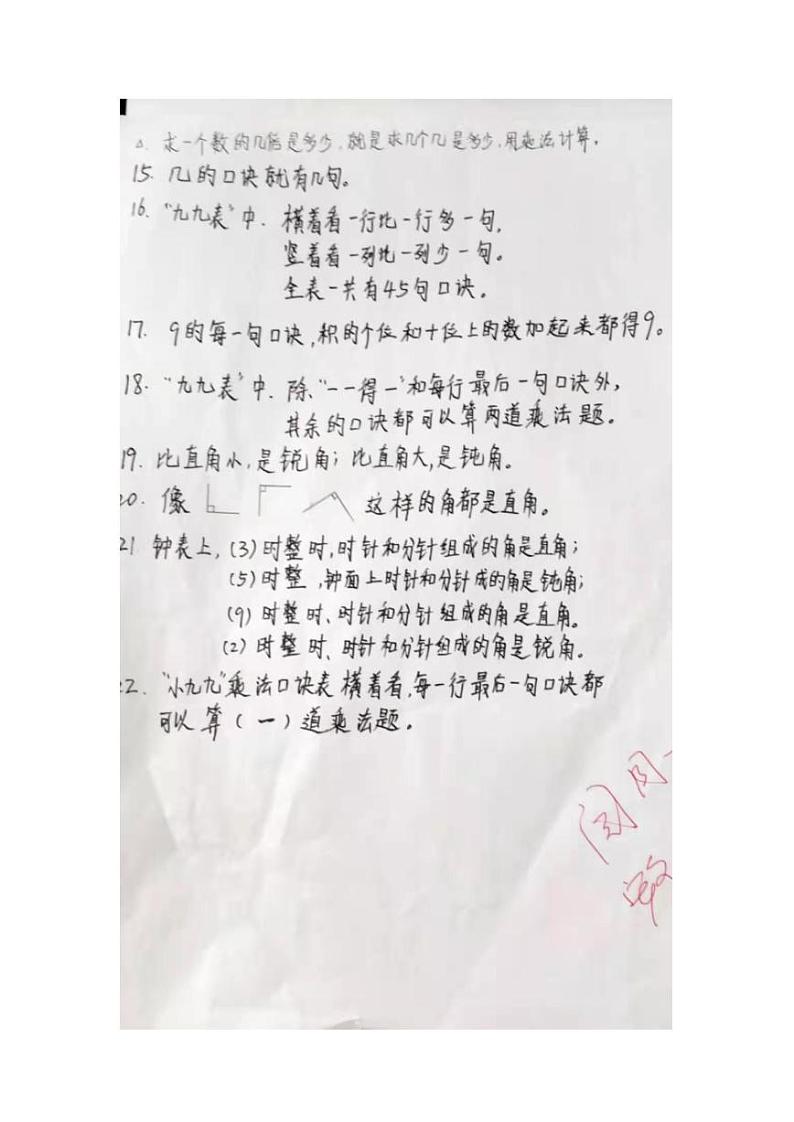 △. 求一个数的几倍是多少，就是求几个几是多少，用乘法计算。
15. 几的口诀就有几句。
16. “九九表”中. 横着看一行比一行多一句，
竖着看一列比一列少一句。
全表一共有45句口诀。
17. 9的每一句口诀，积的个位和十位上的数加起来都得9。
18. “九九表”中. 除、“一一得一”和每行最后一句口诀外，
其余的口诀都可以算两道乘法题。
19. 比直角小，是锐角；比直角大，是钝角。
20. 像 这样的角都是直角。
21 钟表上，(3)时整时，时针和分针组成的角是直角；
(5)时整，钟面上时针和分针成的角是钝角；
(9)时整时、时针和分针组成的角是直角。
(2)时整时、时针和分针组成的角是锐角。
2. “小九九”乘法口诀表横着看，每一行最后一句口诀都
可以算（一）道乘法题。